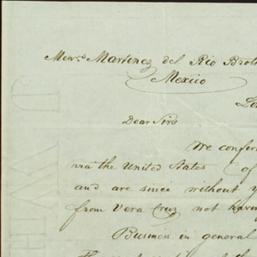 Messrs. Martinez del Rio Brot
Mexico
Dear Sirs
We confer
via the United States of
and are since without y
from Vera Cruz not havin
Business in general